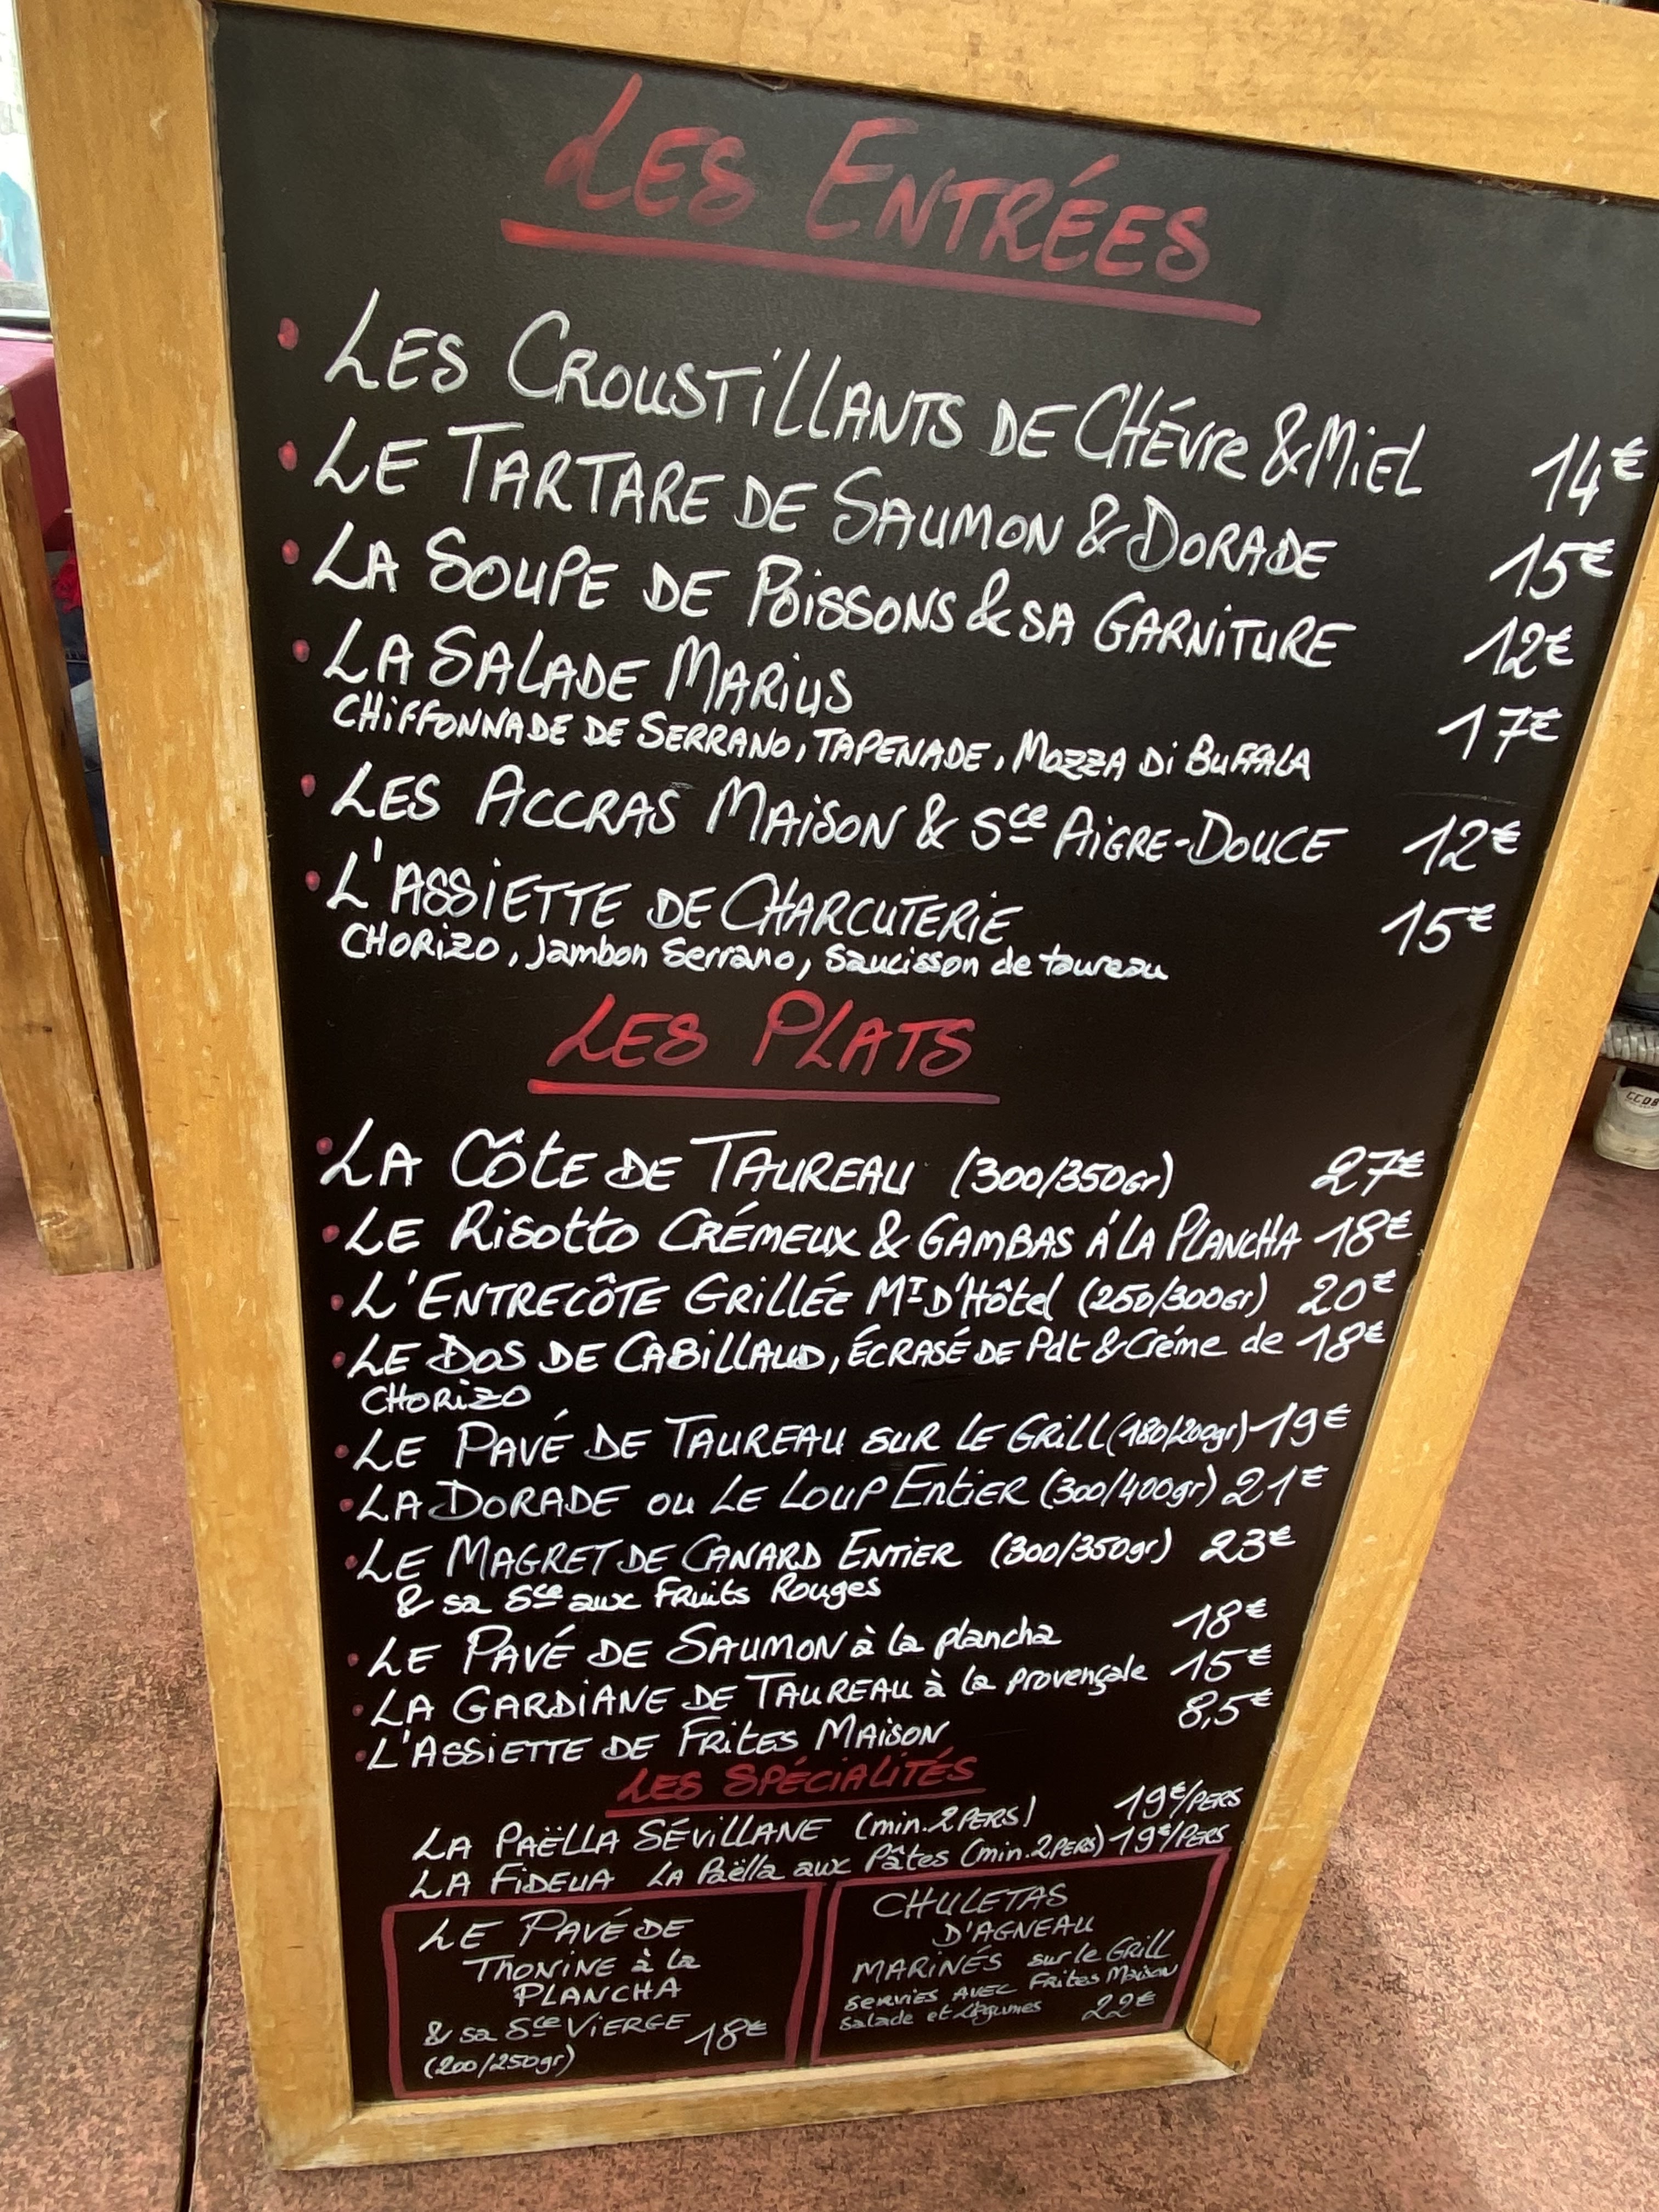 LES ENTRÉES
• LES CROUSTiLLANTS DE CHÉVre & MiEL 14€
• LE TARTARE DE SAUMON & DORADE 15€
• LA SOUPE DE POiSSONS & SA GARNiTURE 12€
• LA SALADE MARiUS 17€
CHiFFONNADE DE SERRANO, TAPENADE, MOZZA Di BUFFALA
• LES ACCRAS MAiSON & Sce AiGRE-DOUCE 12€
• L'ASSiETTE DE CHARCUTERiE 15€
CHORiZO, Jambon Serrano, Saucisson de taureau
LES PLATS
• LA CÔtE DE TAUREAU (300/350Gr) 27€
• LE RiSotto CRÉMEUX & GAMBAS Á LA PLANCHA 18€
• L'ENTRECÔTE GRiLLÉE MT D'Hôtel (250/300Gr) 20€
• LE DOS DE CABiLLAUD, ÉCRASÉ DE Pdt & Créme de 18€
CHORiZO
• LE PAVÉ DE TAUREAU SUR LE GRiLL (180/200gr) 19€
• LA DORADE ou LE LOUP EntiER (300/400gr) 21€
• LE MAGRET DE CANARD ENTiER (300/350gr) 23€
& sa Sce aux FRuits Rouges
• LE PAVÉ DE SAUMON à la plancha 18€
• LA GARDiANE DE TAUREAU à la provençale 15€
• L'ASSiETTE DE FRiTES MAiSON 8,5€
LES SPÉCiALiTÉS
LA PAËLLA SÉViLLANE (min. 2 PERS) 19€/PERS
LA FiDEUA LA Paëlla aux Pâtes (min. 2PERS) 19€/PERS
LE PAVÉ DE
THONiNE à la
PLANCHA
& sa Sce ViERGE 18€
(200/250gr)
CHULETAS
D'AGNEAU
MARiNÉS sur le GRiLL
SERViES AVEC FRites Maison
Salade et Légumes 22€